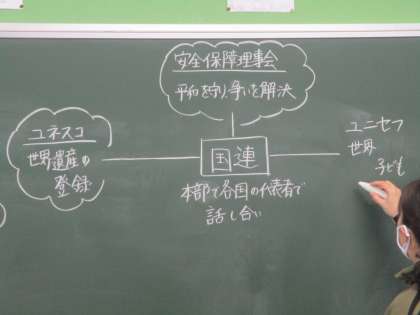 安全保障理事会
平和を守り争いを解決
ユネスコ
世界遺産の
登録
国連
本部で各国の代表者で
話し合い
ユニセフ
世界
子ども